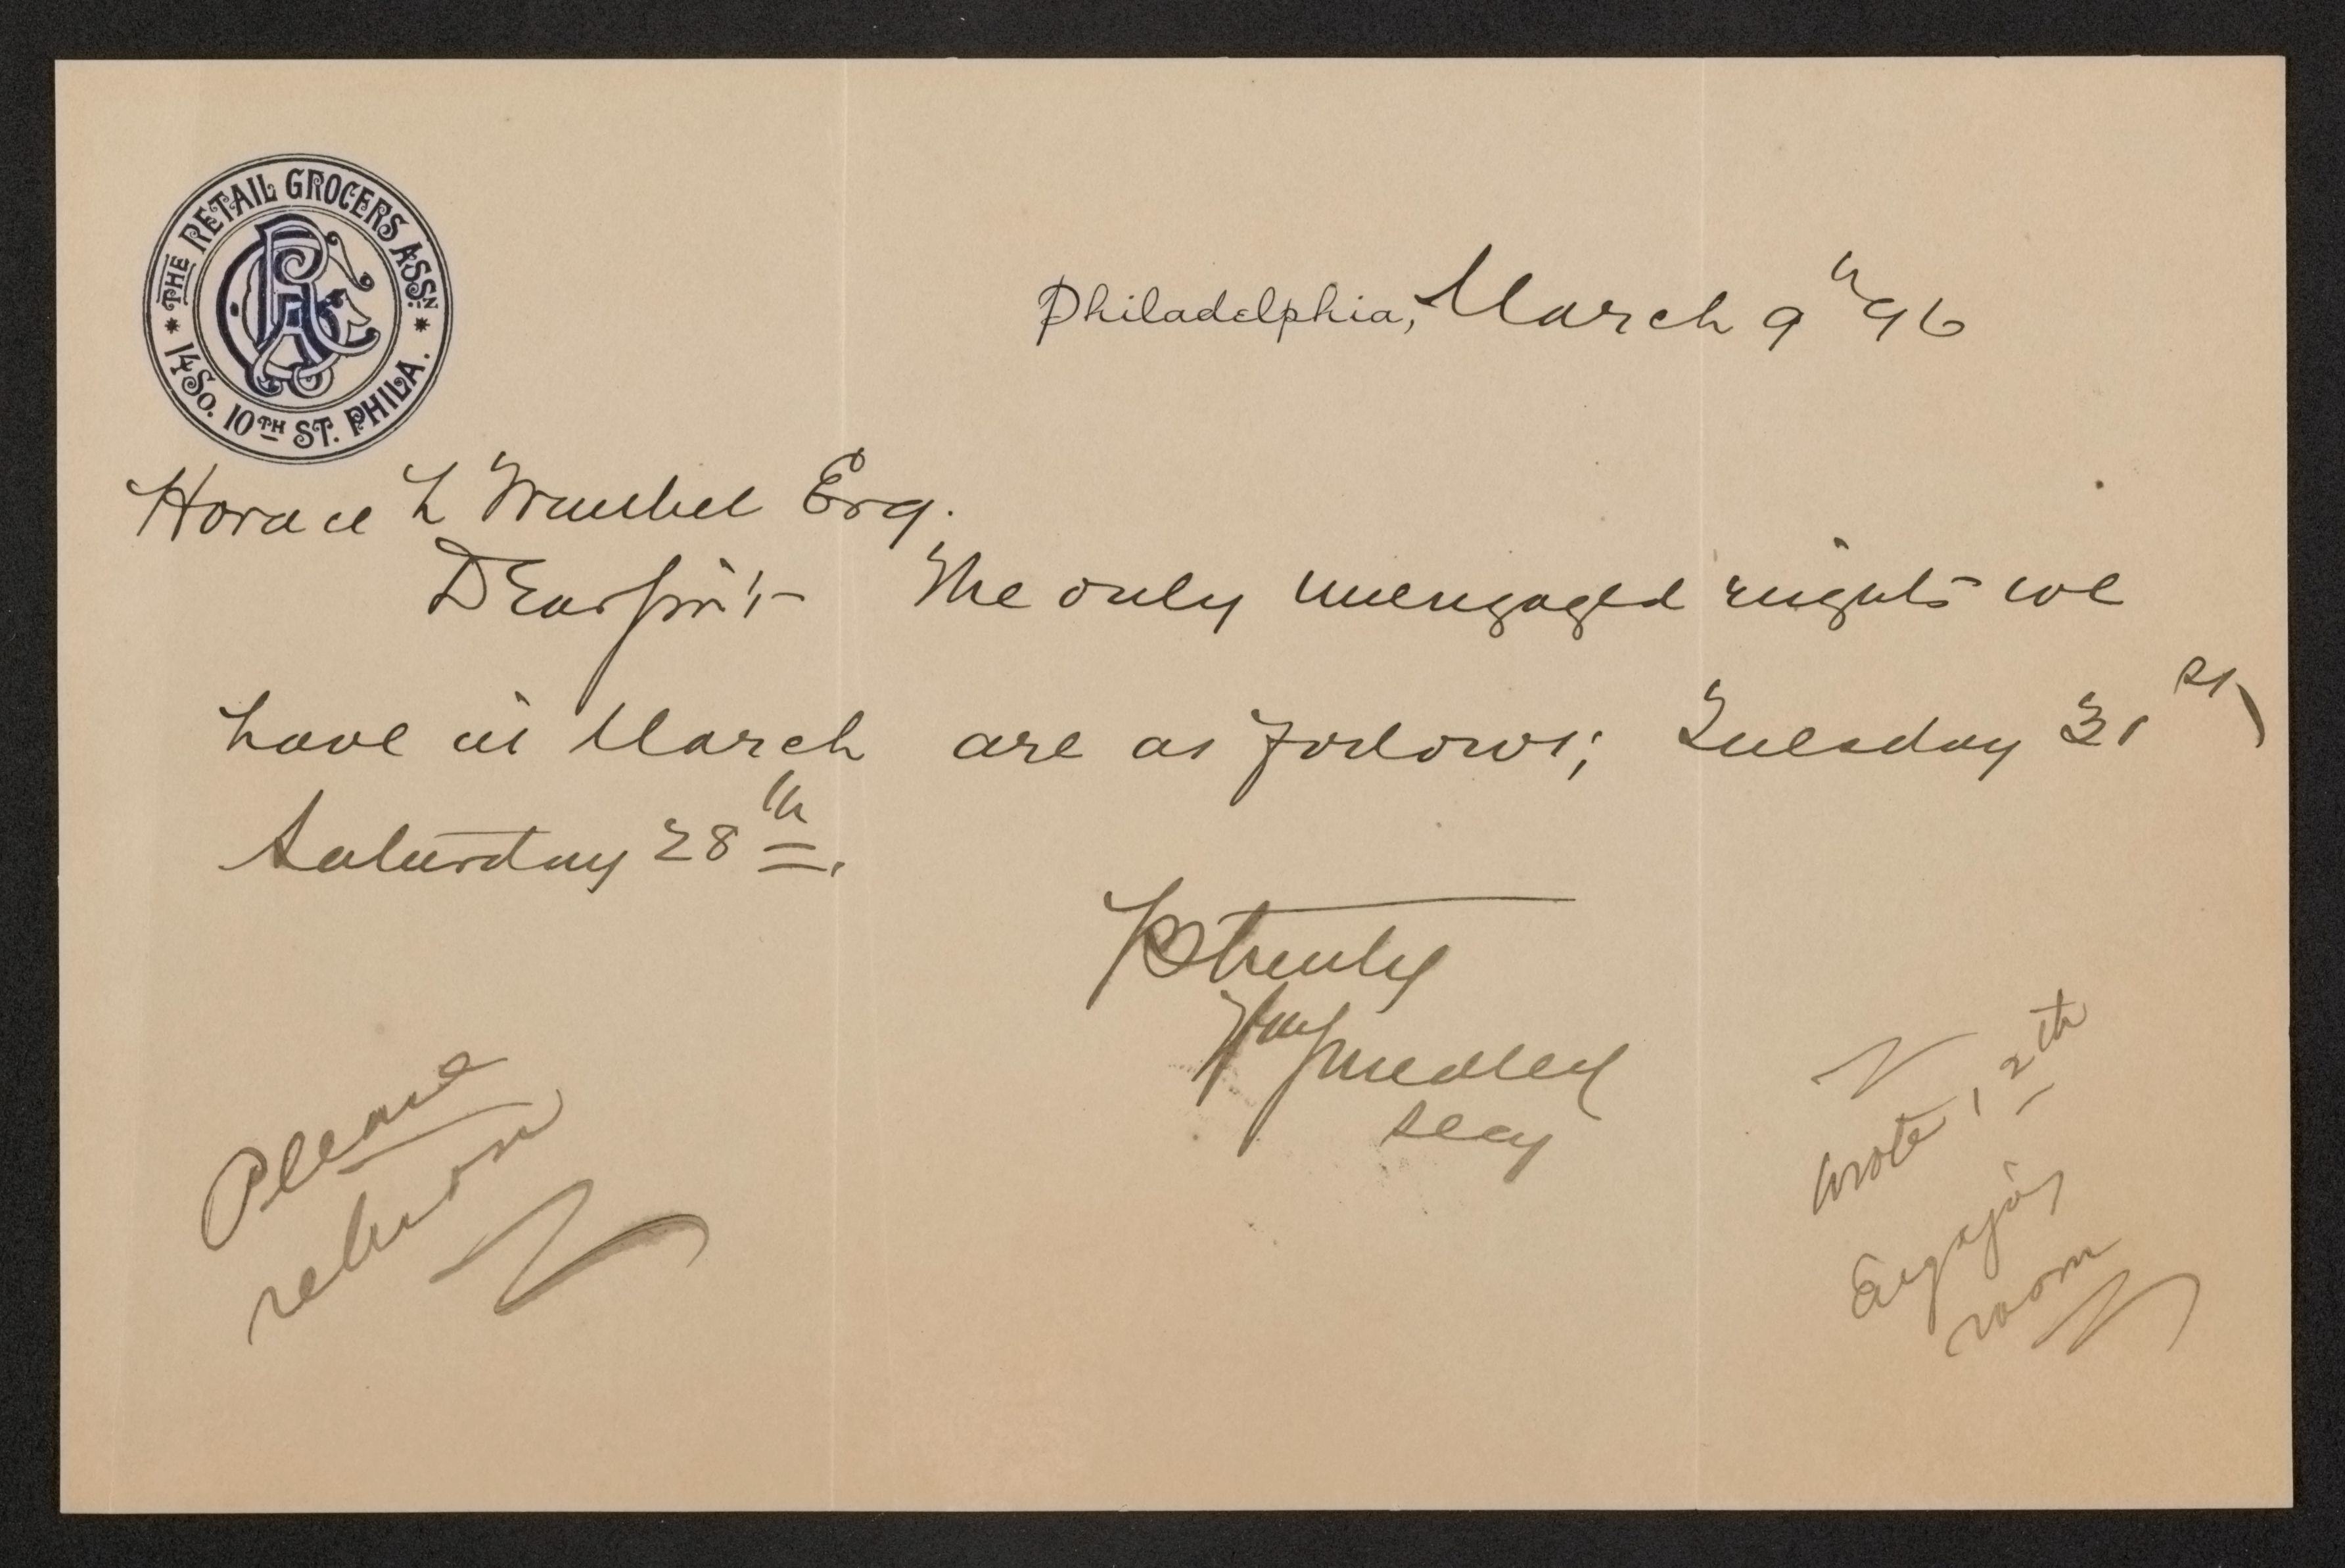 THE RETAIL GROCERS ASSN
14 So. 10TH ST. PHILA.
Philadelphia, March 9th 96
Horace L Traubel Esq.
Dear Sir:- The only unengaged nights we
have in March are as follows; Tuesday 31st,
Saturday 28th.
Truly
Wm Smedley
secy
Please
return
Wrote 12th
Engaging
room